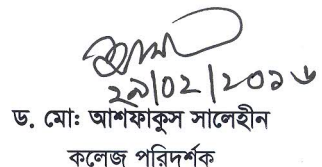 ২৯|০২|২০১৬
ড. মো: আশফাকুস সালেহীন
কলেজ পরিদর্শক